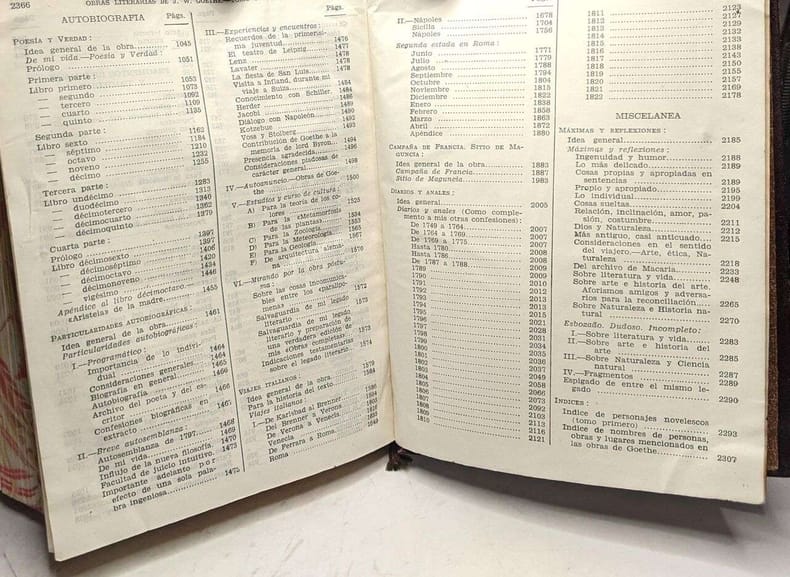 2366 OBRAS LITERARIAS DE J. W. GOETHE
AUTOBIOGRAFIA Págs.
POESÍA Y VERDAD:
Idea general de la obra 1045
De mi vida.—Poesía y Verdad:
Prólogo 1051
Primera parte:
Libro primero 1053
— segundo 1073
— tercero 1092
— cuarto 1109
— quinto 1135
Segunda parte:
Libro sexto 1162
— séptimo 1184
— octavo 1210
— noveno 1232
— décimo 1255
Tercera parte:
Libro undécimo 1283
— duodécimo 1313
— décimotercero 1340
— décimocuarto 1362
— décimoquinto 1379
Cuarta parte:
Prólogo 1397
Libro décimosexto 1397
— décimoséptimo 1406
— décimoctavo 1420
— décimonoveno 1434
— vigésimo 1446
Apéndice al libro décimoctavo.
«Aristeia» de la madre. 1455
PARTICULARIDADES AUTOBIOGRÁFICAS:
Idea general de la obra 1461
Particularidades autobiográficas:
I.—Programático:
Importancia de lo indivi-
dual 1464
Consideraciones generales 1464
Biografía en general 1465
Autobiografía 1466
Archivo del poeta y del es-
critor 1466
Confesiones biográficas en
extracto 1467
II.—Breve autosemblanza:
Autosemblanza de 1797 1468
De mi vida 1469
Influjo de la nueva filosofía. 1470
Facultad de juicio intuitivo. 1473
Importante adelanto por
efecto de una sola pala-
bra ingeniosa 1475
Págs.
III.—Experiencias y encuentros:
Recuerdos de la primerísi-
ma juventud 1476
El teatro de Leipzig 1477
Lenz 1478
Lavater 1478
La fiesta de San Luis
Visita a Iffland, durante mi
viaje a Suiza 1484
Conocimiento con Schiller. 1484
Herder 1486
Jacobi 1489
Diálogo con Napoleón 1490
Kotzebue 1492
Voss y Stolberg 1493
Contribución de Goethe a la
memoria de lord Byron 1494
Presencia agradecida 1496
Consideraciones piadosas de
carácter general 1498
IV.—Autoanuncio—Obras de Goe-
the 1500
V.—Estudios y curso de cultura:
A) Para la teoría de los co-
lores 1525
B) Para la «Metamorfosis
de las plantas» 1534
C) Para la Zoología 1565
D) Para la Meteorología 1567
E) Para la Geología
F) De arquitectura alema-
na 1570
VI.—Mirando por la obra póstu-
ma:
Sobre las cosas incomunica-
bles entre los «paralipome-
nos» 1572
Salvaguardia de mi legado
literario 1573
Salvaguardia de mi legado
literario y preparación de
una verdadera edición de
mis «Obras completas» 1574
Indicaciones testamentarias
sobre el legado literario
VIAJES ITALIANOS:
Idea general de la obra 1579
Para la historia del texto 1580
Viajes italianos:
I.—De Karlsbad al Brenner
Del Brenner a Verona
De Verona a Venecia
Venecia
De Ferrara a Roma
Roma 1649
II.—Nápoles 1678
Sicilia 1704
Nápoles 1756
Segunda estada en Roma:
Junio 1771
Julio 1779
Agosto 1788
Septiembre 1794
Octubre 1804
Noviembre 1815
Diciembre 1822
Enero 1838
Febrero 1858
Marzo 1863
Abril 1872
Apéndice 1880
CAMPAÑA DE FRANCIA. SITIO DE MA-
GUNCIA:
Idea general de la obra 1883
Campaña de Francia 1887
Sitio de Maguncia 1983
DIARIOS Y ANALES:
Idea general 2005
Diarios y anales (Como comple-
mento a mis otras confesiones):
De 1749 a 1764 2007
De 1764 a 1769 2007
De 1769 a 1775 2007
Hasta 1780 2007
Hasta 1786 2008
De 1787 a 1788 2008
1789 2009
1790 2009
1791 2010
1792 2012
1793 2013
1794 2013
1795 2016
1796 2021
1797 2028
1798 2031
1799 2034
1800 2035
1801 2036
1802 2049
1803 2058
1804 2066
1805
1806
1807 2073
1808 2092
1809 2103
1810 2113
2116
2121
1811 2123
1812 2127
1813 2129
1814 2132
1815 2133
1816 2138
1817 2143
1818 2150
1819 2155
1820 2157
1821 2169
1822 2178
MISCELANEA
MÁXIMAS Y REFLEXIONES:
Idea general 2185
Máximas y reflexiones:
Ingenuidad y humor 2188
Lo más delicado 2189
Cosas propias y apropiadas en
sentencias 2189
Propio y apropiado 2195
Lo individual 2199
Cosas sueltas 2204
Relación, inclinación, amor, pa-
sión, costumbre 2211
Dios y Naturaleza 2212
Más antiguo, casi anticuado 2215
Consideraciones en el sentido
del viajero.—Arte, ética, Na-
turaleza 2218
Del archivo de Macaria 2233
Sobre literatura y vida 2248
Sobre arte e historia del arte.
Aforismos amigos y adversa-
rios para la reconciliación 2265
Sobre Naturaleza e Historia na-
tural 2270
Esbozado. Dudoso. Incompleto:
I.—Sobre literatura y vida 2283
II.—Sobre arte e historia del
arte 2285
III.—Sobre Naturaleza y Ciencia
natural 2287
IV.—Fragmentos 2289
Espigado de entre el mismo le-
gado 2290
INDICES:
Indice de personajes novelescos
(tomo primero) 2293
Indice de nombres de personas,
obras y lugares mencionados en
las obras de Goethe 2307